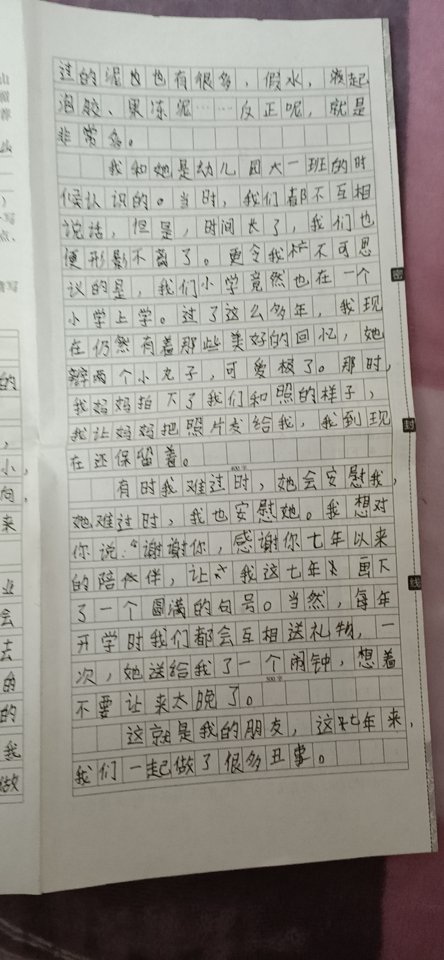 过的泥也也有很多，假水，
泡胶、果冻泥……反正呢，就是
非常多。
我和她是幼儿园大一班的时
候认识的。当时，我们都不互相
说话，但是，时间长了，我们也
便形影不离了。更令我不可思
议的是，我们小学竟然也在一个
小学上学。过了这么多年，我现
在仍然有着那些美好的回忆，她
两个小丸子，可爱极了。那时，
我妈妈拍下了我们和照的样子，
我让妈妈把照片发给我，我到现
在还保留着。
400字
有时我难过时，她会安慰我，
她难过时，我也安慰她。我想对
你说：“谢谢你，感谢你七年以来
的陪伴，让我这七年画下
了一个圆满的句号。当然，每年
开学时我们都会互相送礼物，一
次，她送给我了一个闹钟，想着
不要让来太晚了。
500字
这就是我的朋友，这七年来，
我们一起做了很多丑事。
密
封
线
山
写
点、
写
的
，
小，
向，
来
业
会
去
的
的
我
做